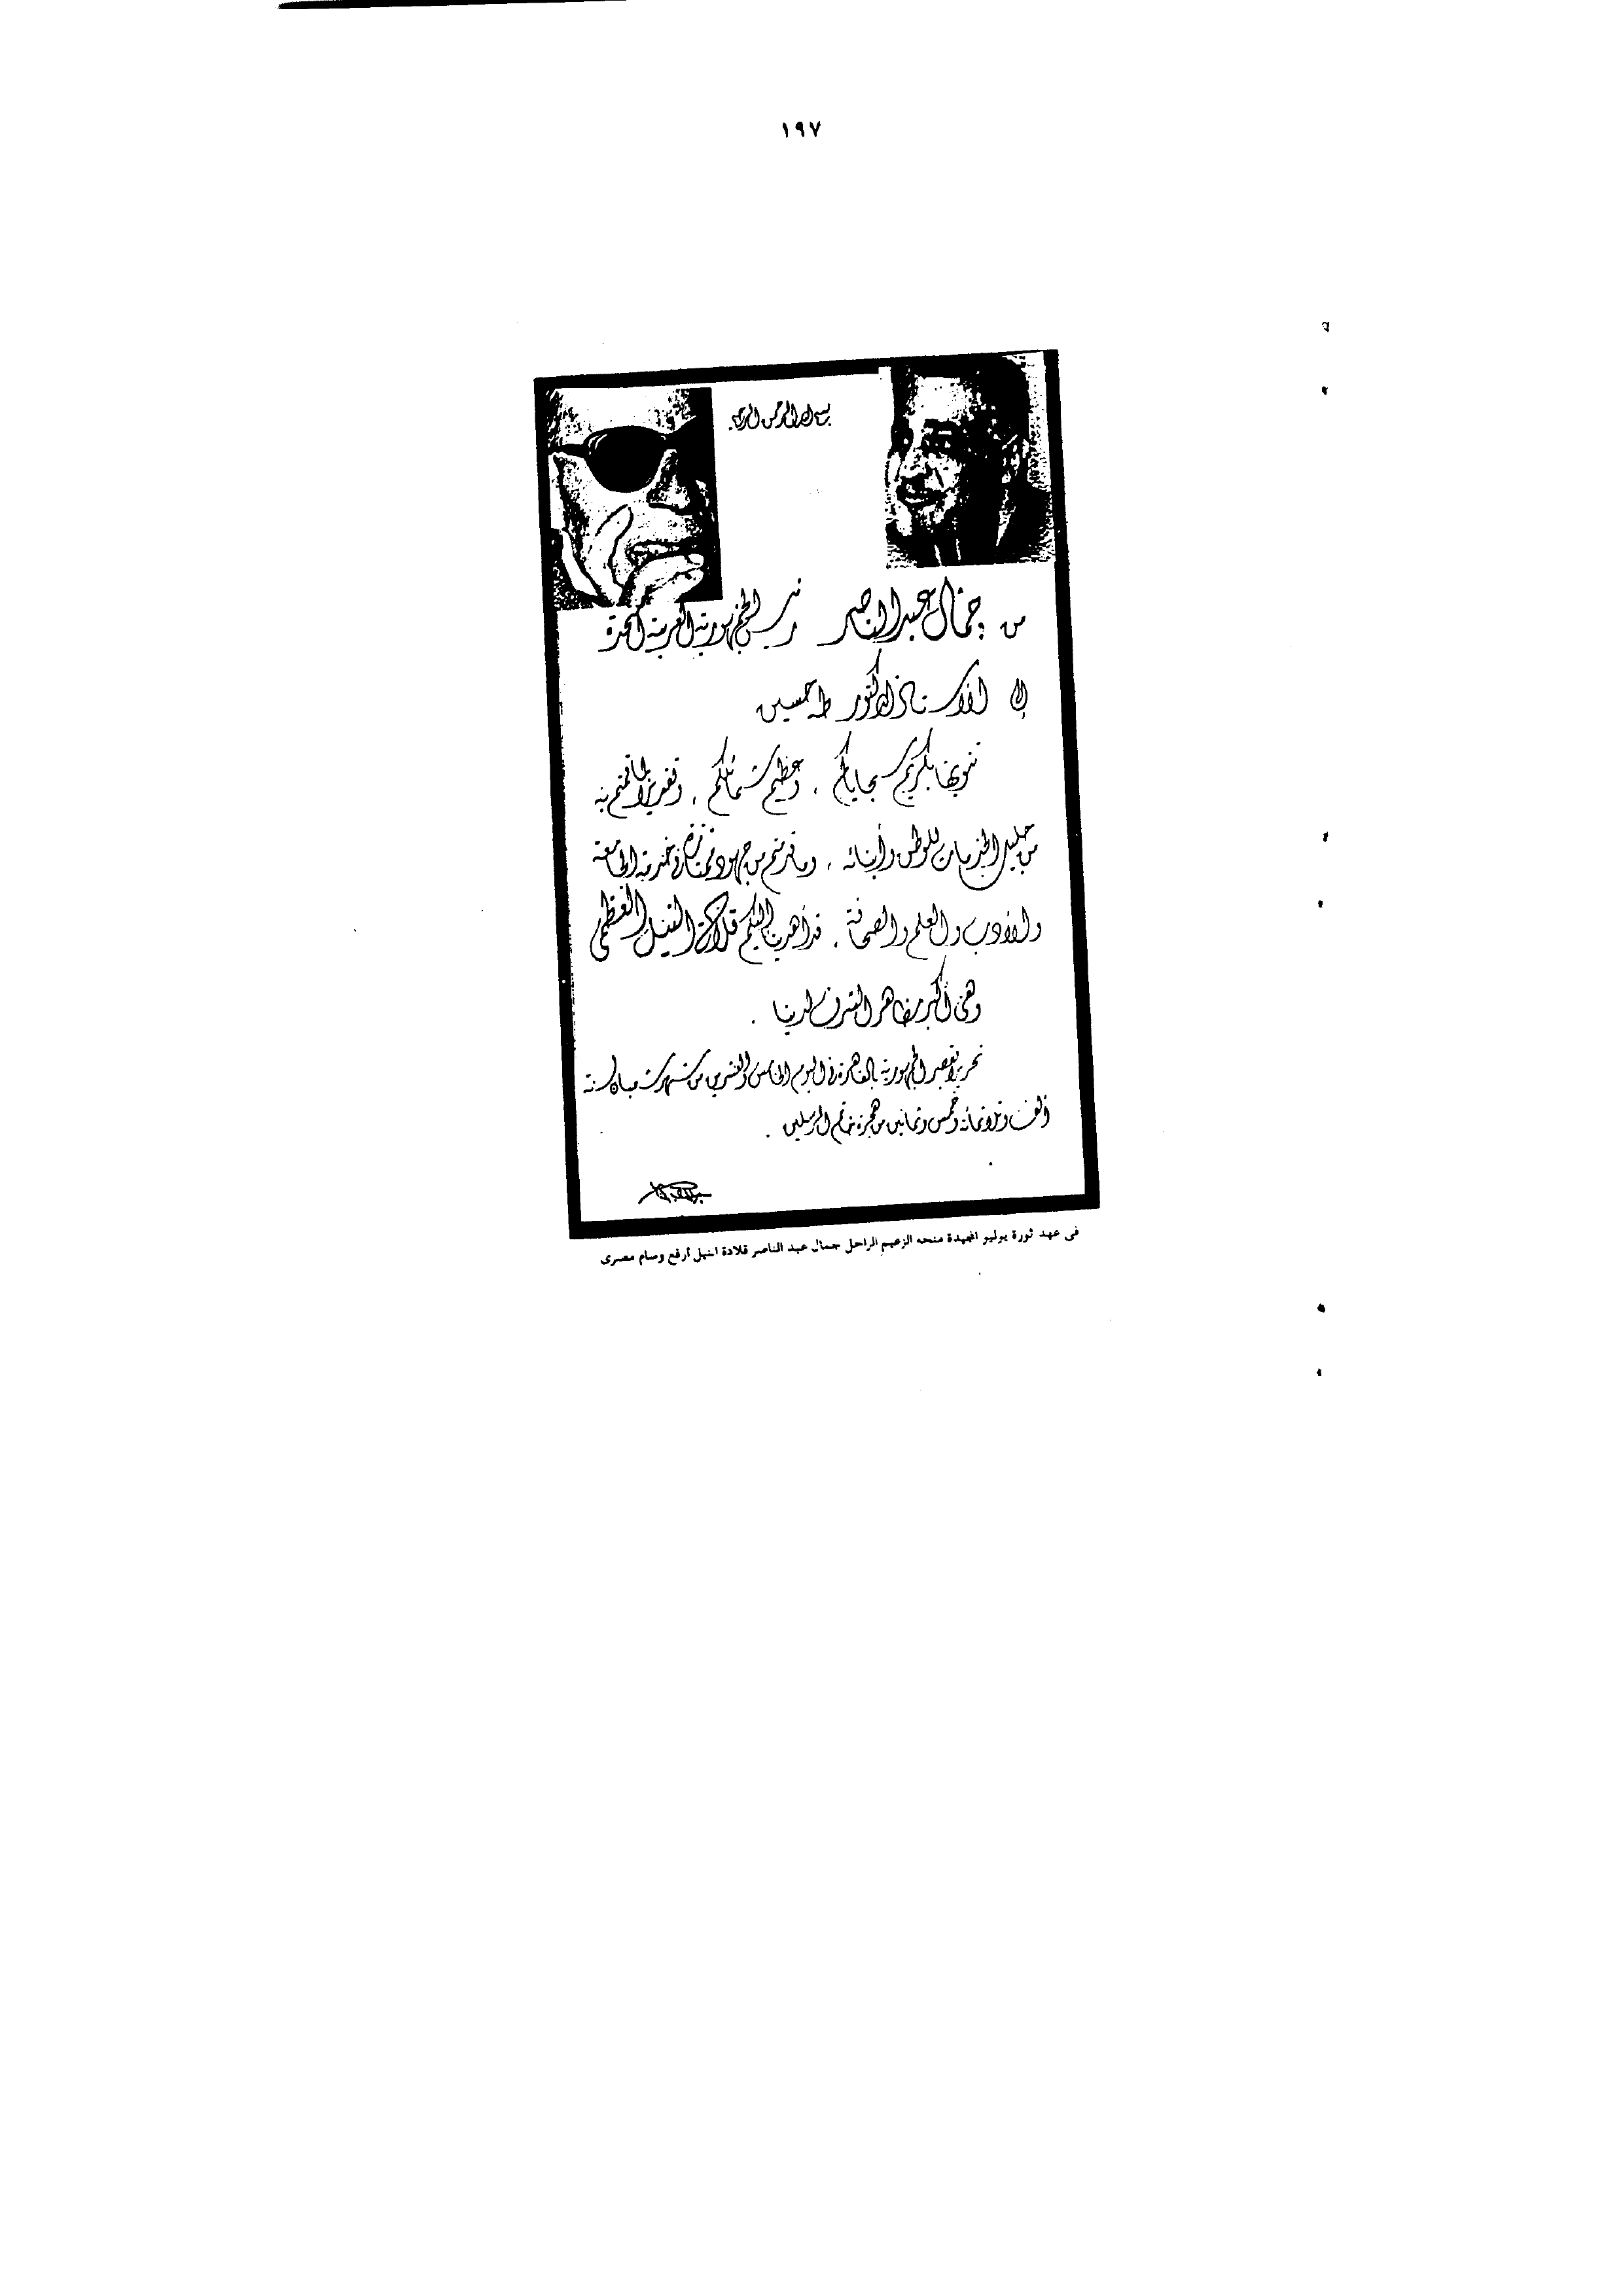 ١٩٧
بسم الله الرحمن الرحيم
من جمال عبد الناصر رئيس الجمهورية العربية المتحدة
إلى الأستاذ الدكتور طه حسين
تنويها بكريم سجاياكم ، وعظيم شمائلكم ، وتقديرا لما قمتم به
من جليل الخدمات للوطن وأبنائه ، وما قدمتم من جهود ممتازة في خدمة الجامعة
والأدب والعلم والصحافة ، قد أهدينا إليكم قلادة النيل العظمى
وهي أكبر مظاهر الشرف لدينا .
تحريرا بقصر الجمهورية بالقاهرة في اليوم الخامس والعشرين من شهر شعبان سنة
ألف وثلاثمائة وخمس وثمانين من هجرة خاتم المرسلين .
فى عهد ثورة يوليو المجيدة منحه الزعيم الراحل جمال عبد الناصر قلادة النيل أرفع وسام مصرى